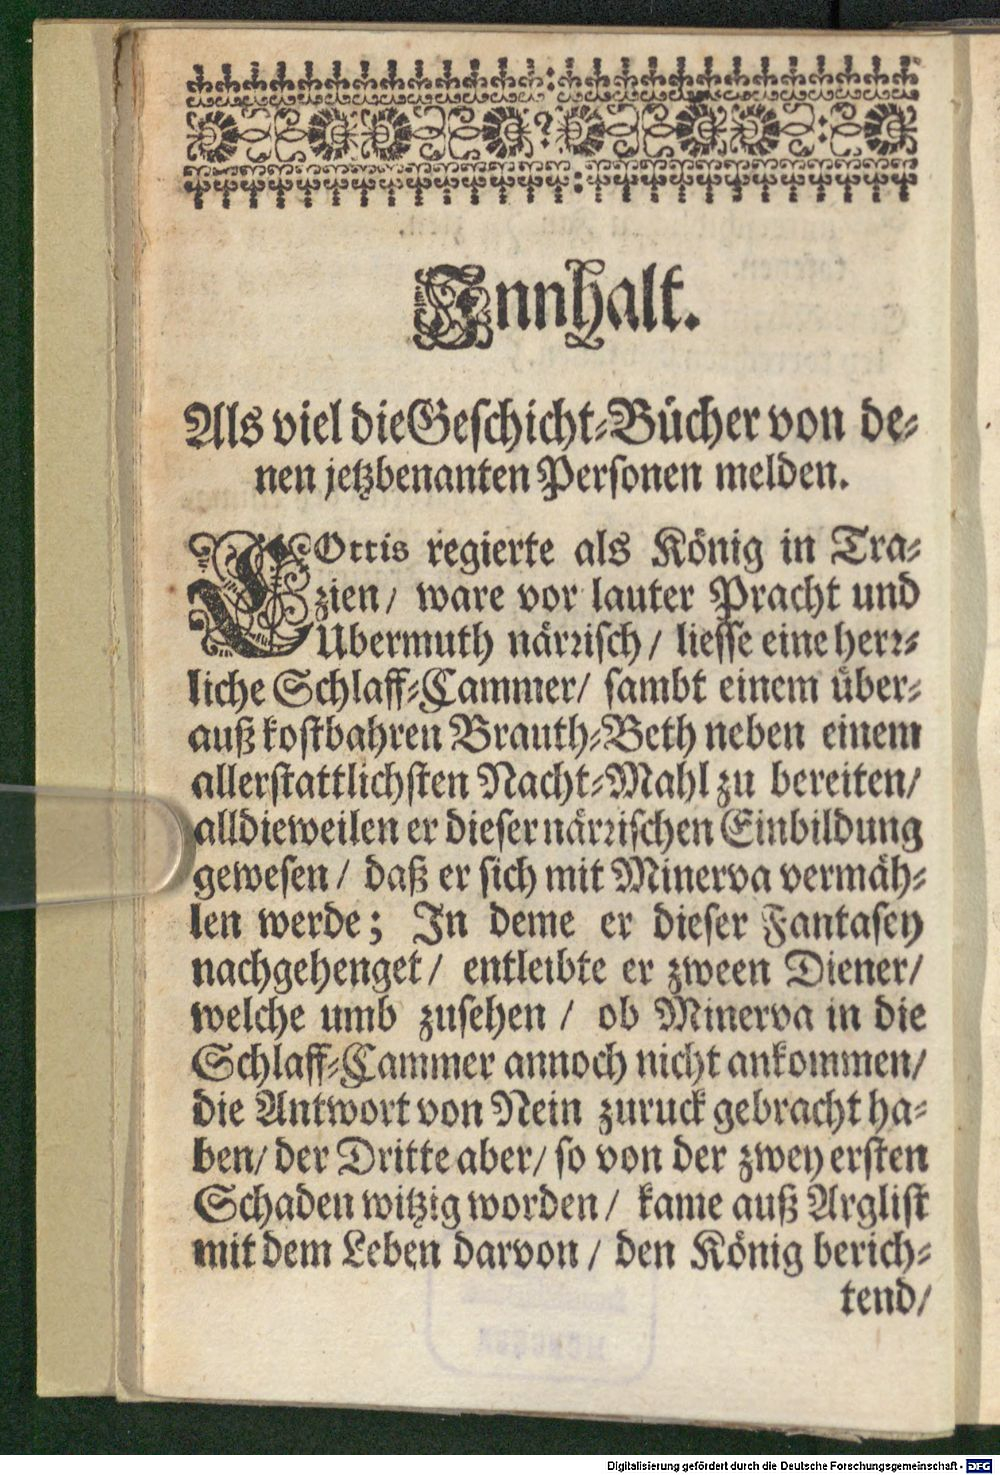 Innhalt.
Als viel die Geschicht-Bücher von de-
nen jetzbenanten Personen melden.
COttis regierte als König in Tra-
zien/ ware vor lauter Pracht und
Ubermuth närrisch/ liesse eine herr-
liche Schlaff-Cammer/ sambt einem über-
auß kostbahren Brauth-Beth neben einem
allerstattlichsten Nacht-Mahl zu bereiten/
alldieweilen er dieser närrischen Einbildung
gewesen/ daß er sich mit Minerva vermäh-
len werde; In deme er dieser Fantasey
nachgehenget/ entleibte er zween Diener/
welche umb zusehen/ ob Minerva in die
Schlaff-Cammer annoch nicht ankommen/
die Antwort von Nein zuruck gebracht ha-
ben/ der Dritte aber/ so von der zwey ersten
Schaden witzig worden/ kame auß Arglist
mit dem Leben darvon/ den König berich-
tend/
Digitalisierung gefördert durch die Deutsche Forschungsgemeinschaft - DFG